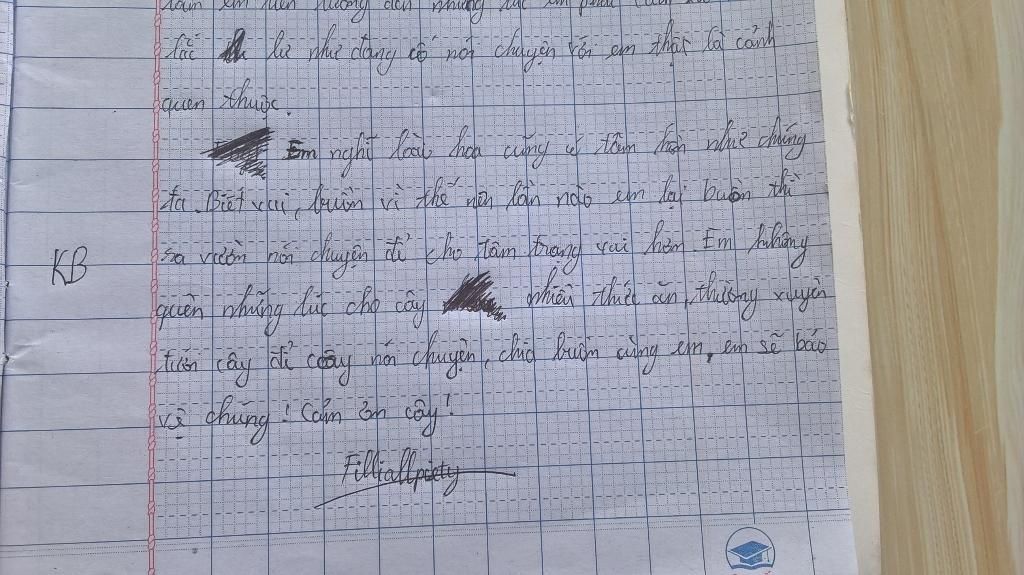 tâm em luôn hướng đến những lúc em phải
lắc lư như đang cố nói chuyện với em thật là cảnh
quen thuộc.
Em nghĩ loài hoa cũng có tâm hồn như chúng
ta. Biết vui, buồn vì thế nên lần nào em lại buồn thì
ra vườn nói chuyện để cho tâm trạng vui hơn. Em không
quên những lúc cho cây nhiều thức ăn, thường xuyên
tưới cây để cây nói chuyện, chia buồn cùng em, em sẽ bảo
KB
vệ chúng! Cảm ơn cây!
Fillialpiety